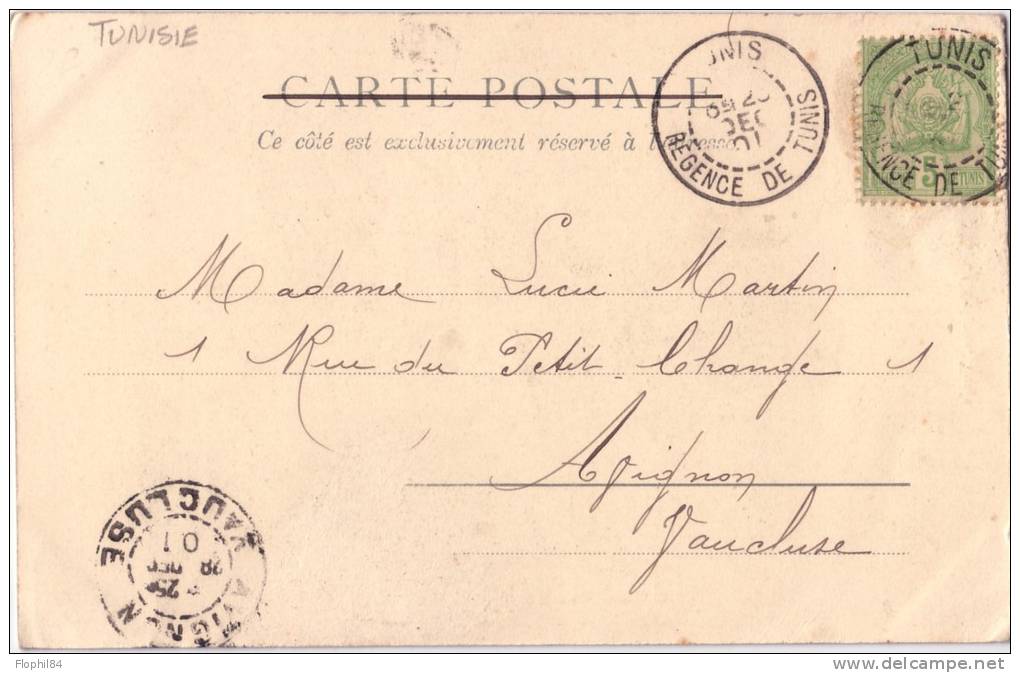 TUNISIE
CARTE POSTALE
Ce côté est exclusivement réservé à l'adresse
TUNIS
25
DEC
01
REGENCE DE TUNIS
TUNIS
REGENCE DE TUNIS
5
TUNIS
Madame Lucie Martin
1 Rue du Petit-Change 1
Avignon
Vaucluse
AVIGNON
25
28 DEC
01
VAUCLUSE
Flophil84
delcampe.net